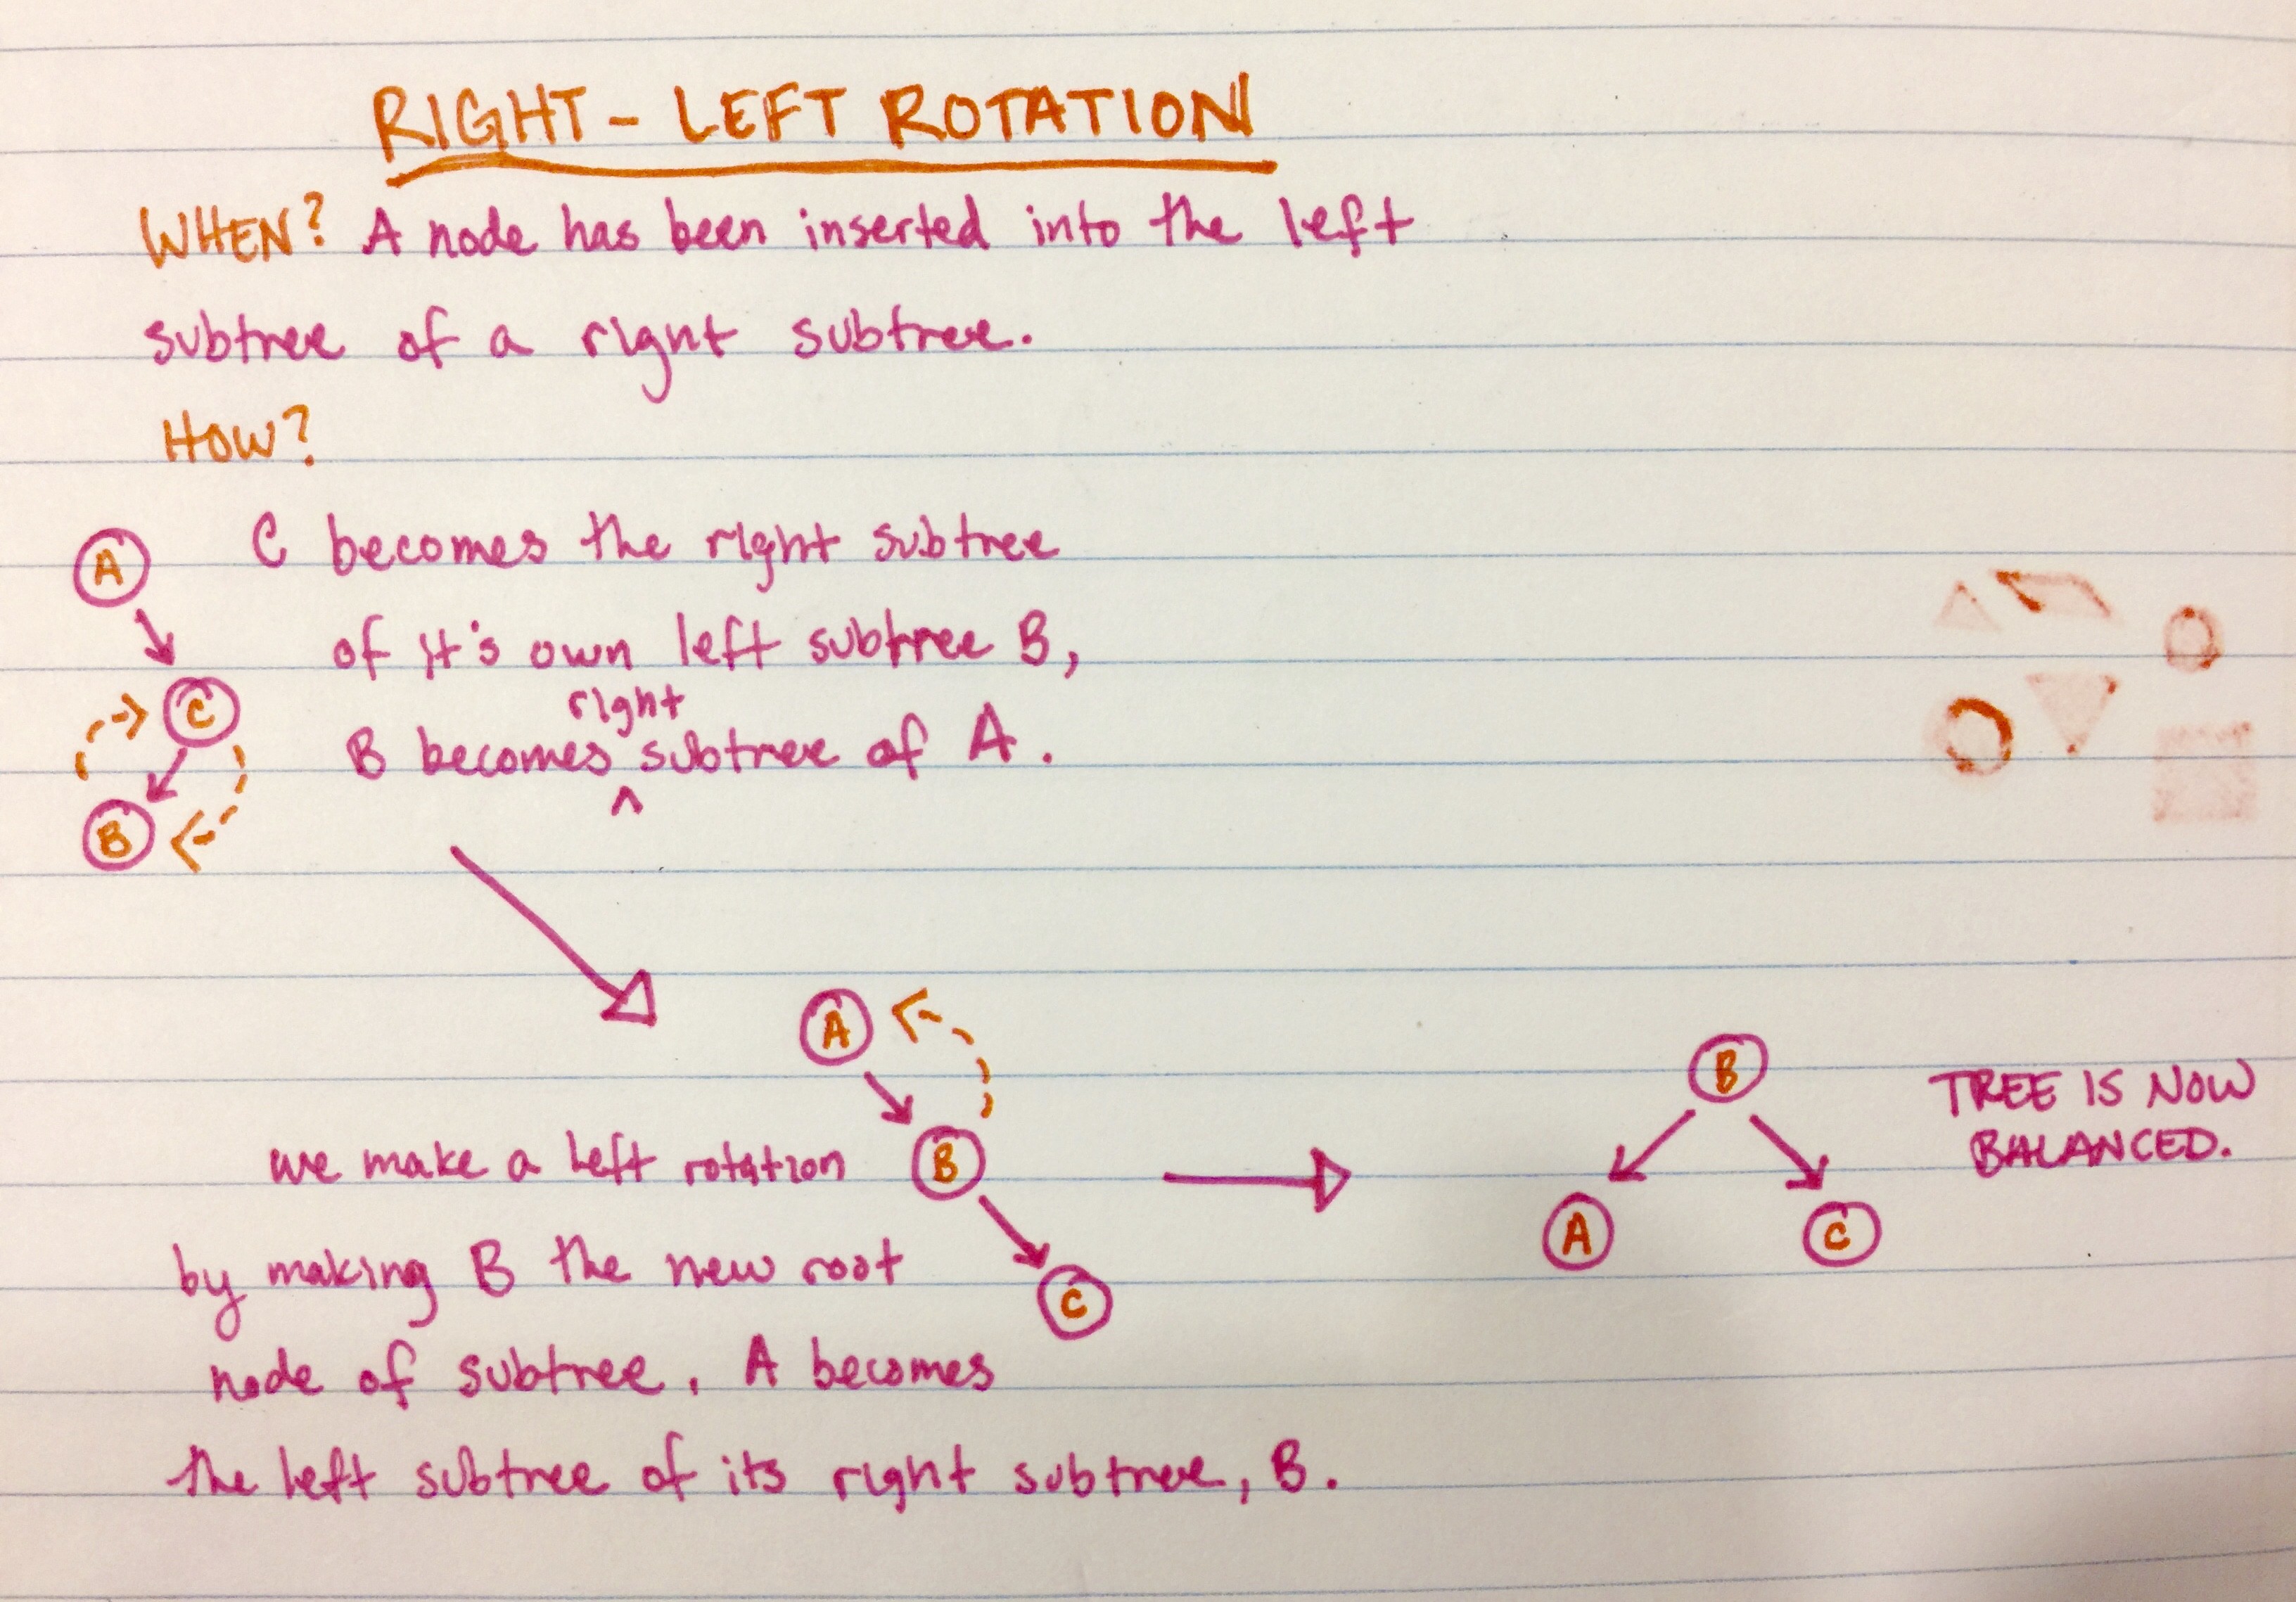 RIGHT - LEFT ROTATION
WHEN? A node has been inserted into the left
subtree of a right subtree.
HOW?
C becomes the right subtree
of it's own left subtree B,
right
B becomes ^ subtree of A.
A
C
B
A
B
C
we make a left rotation
by making B the new root
node of subtree. A becomes
the left subtree of its right subtree, B.
B
A C
TREE IS NOW
BALANCED.